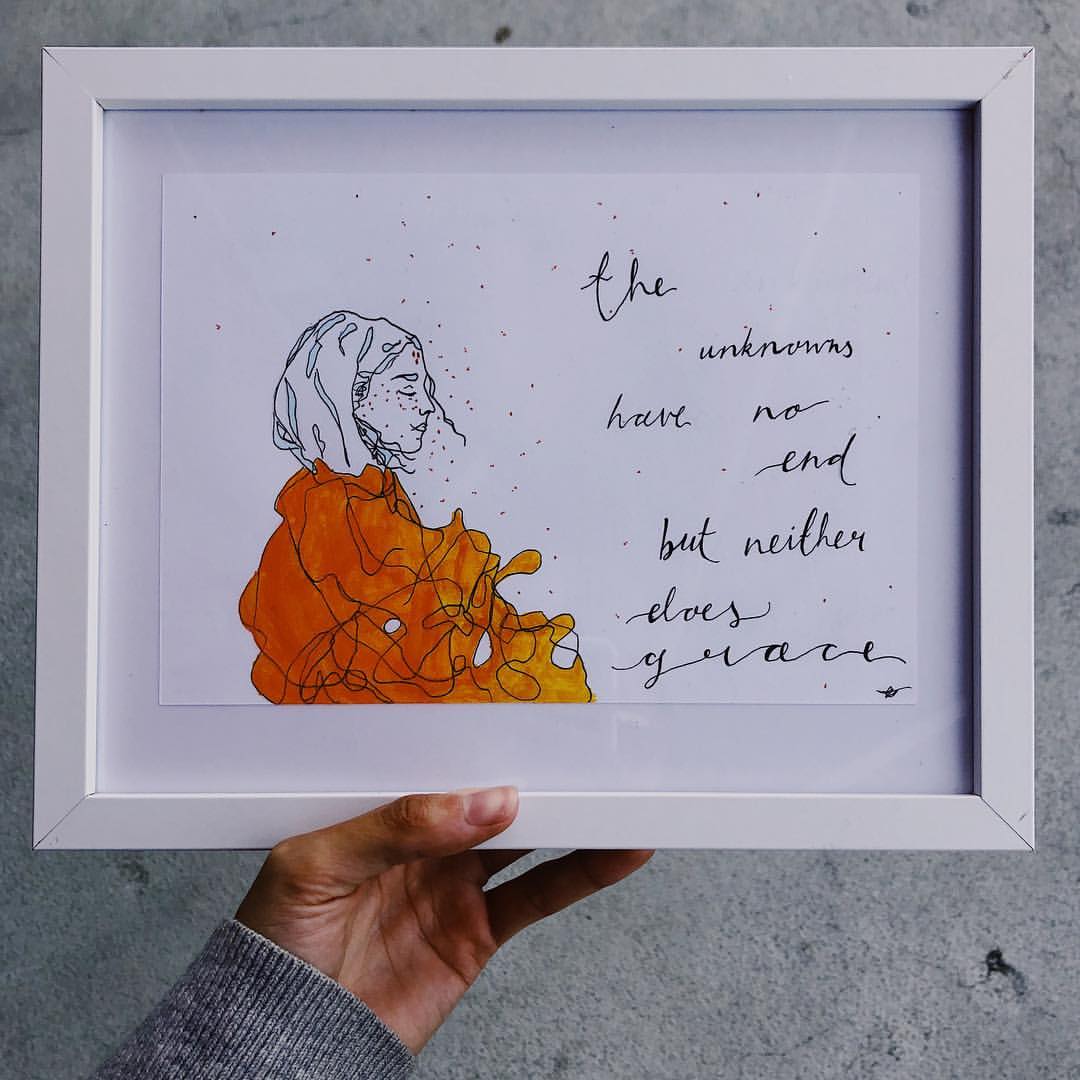 the
unknowns
have no
end
but neither
does
grace